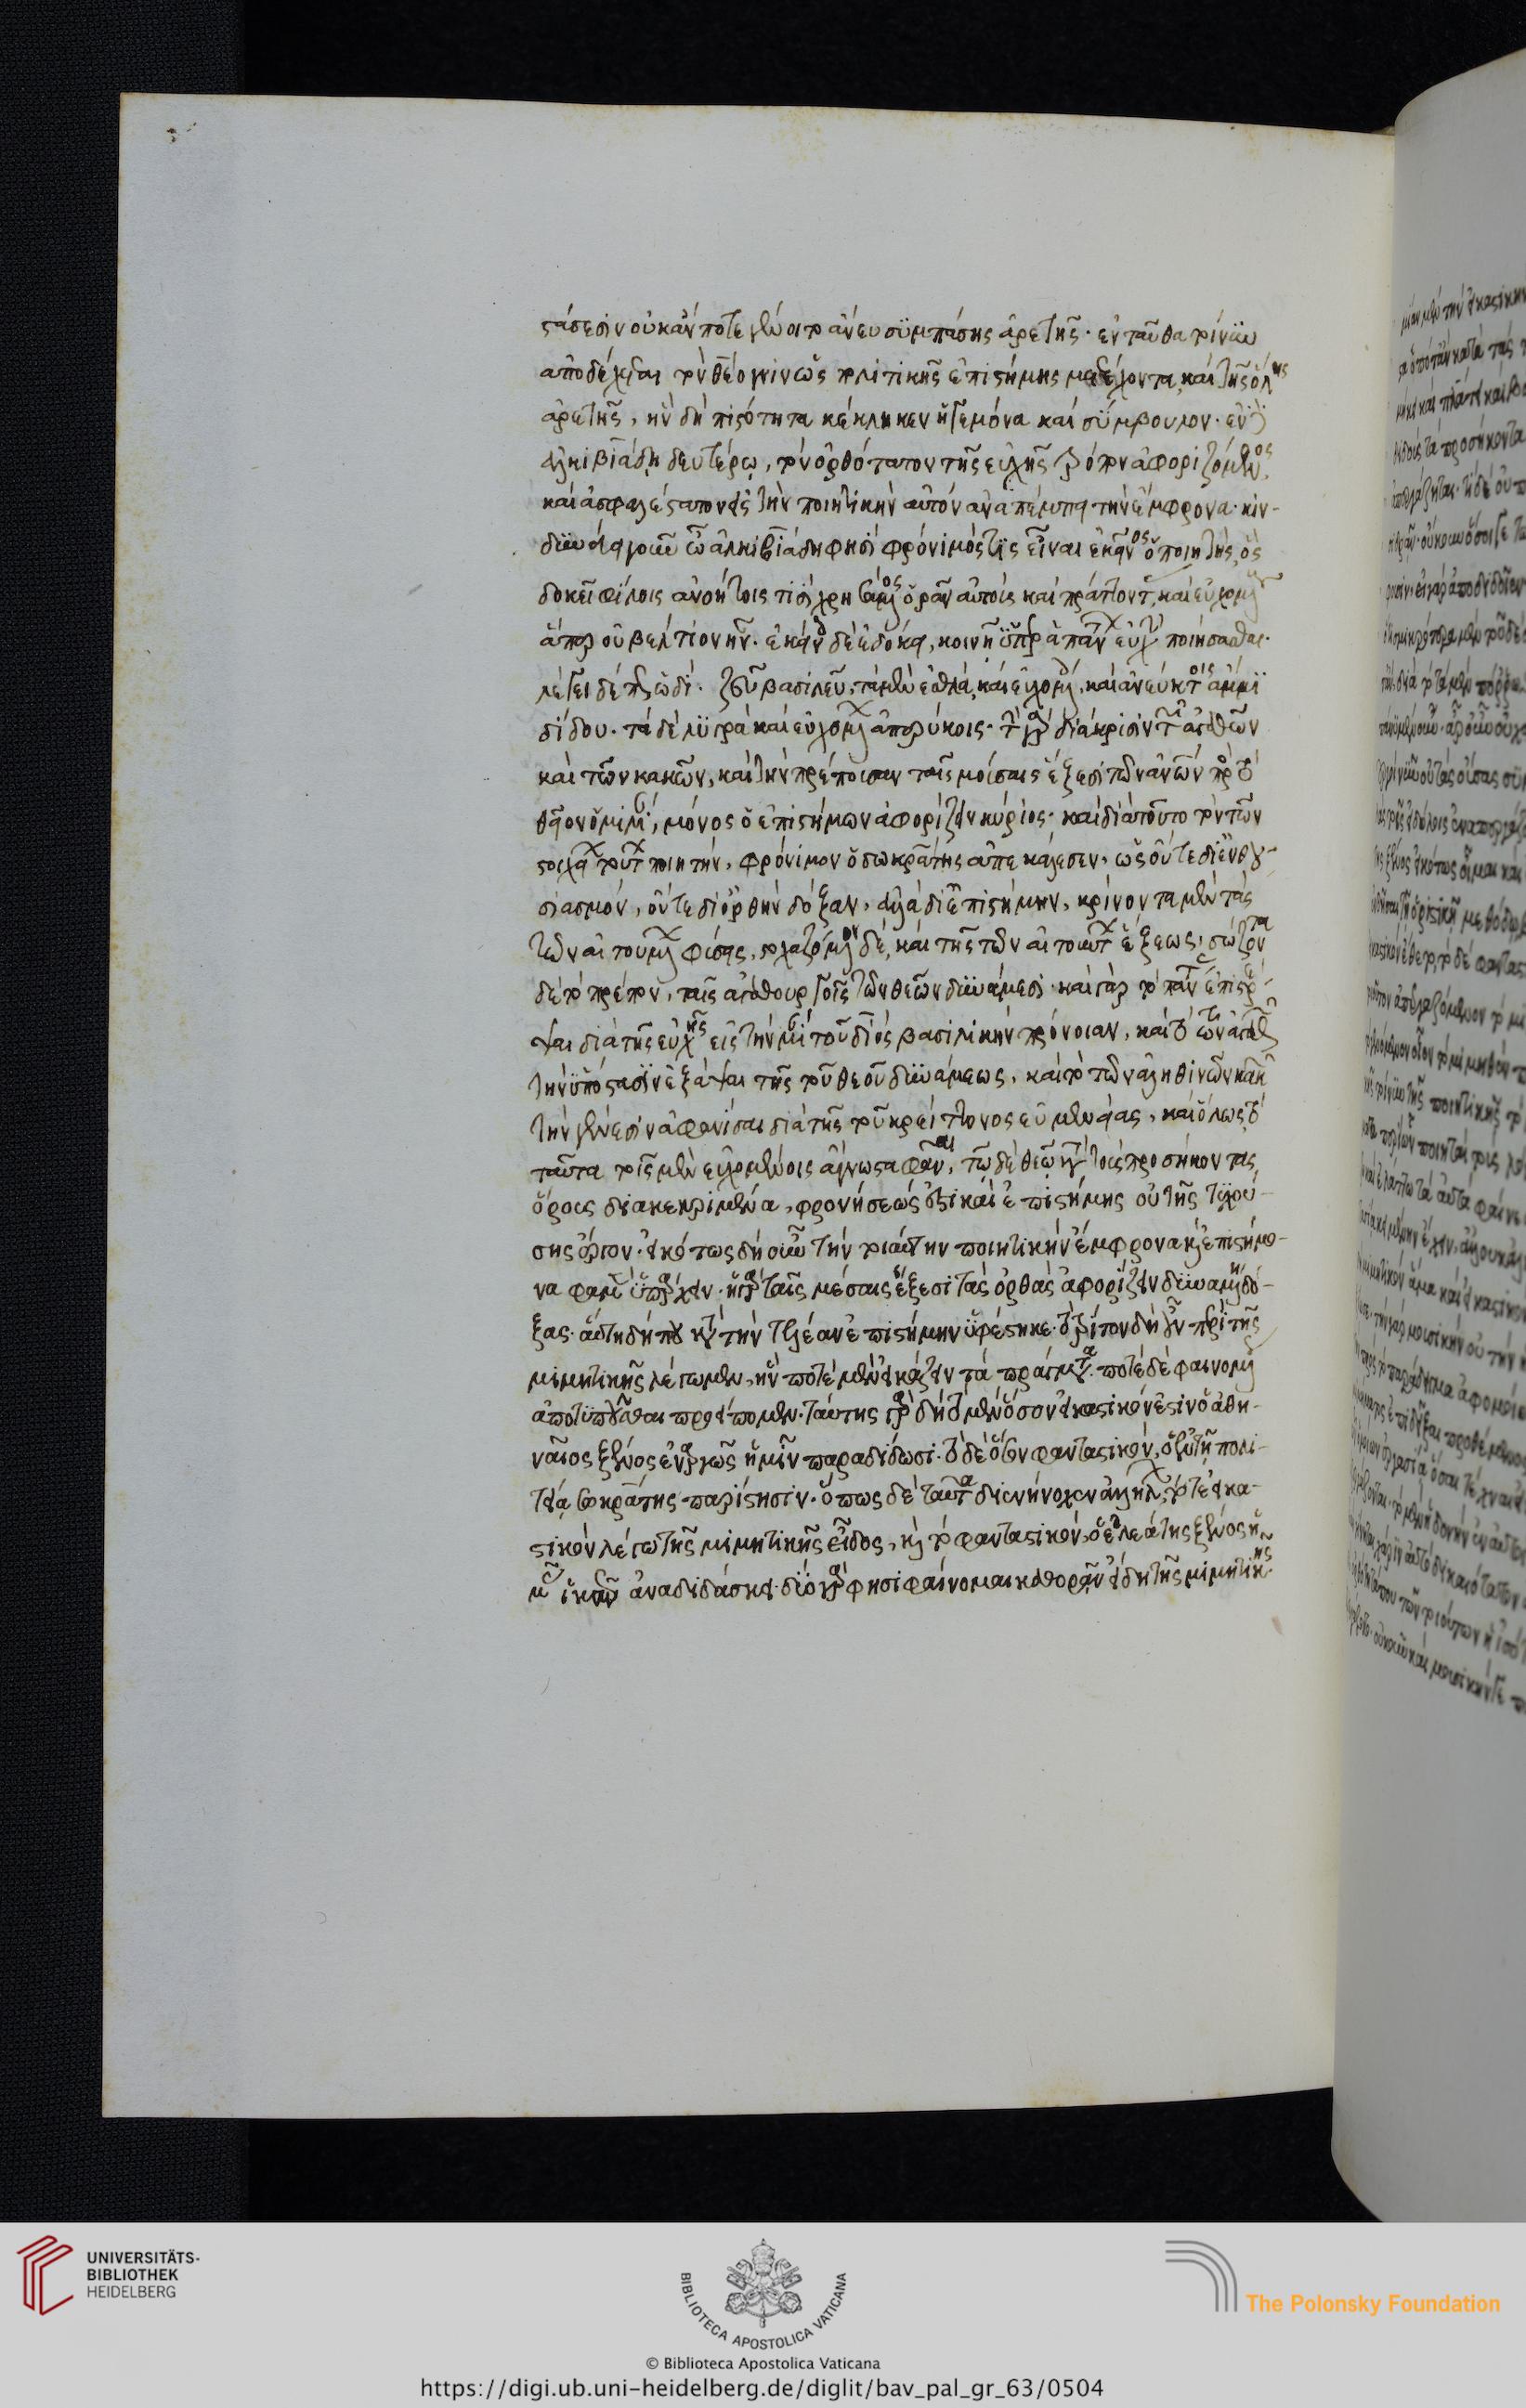 στάσεσιν οὐκ ἄν ποτε γένοιτο ἄνευ συμπάσης ἀρετῆς· ἐνταῦθα τοίνυν
ἀποδέχεται τὸν θέογνιν ὡς πολιτικῆς ἐπιστήμης μετέχοντα, καὶ τῆς ὅλης
ἀρετῆς, ἣν δὴ πιστότητα κέκληκεν ἡγεμόνα καὶ σύμβουλον· ἐν δὲ
ἀλκιβιάδη δευτέρω, τὸν ὀρθότατον τῆς εὐχῆς τρόπον ἀφοριζόμενος
καὶ ἀσφαλέστατον εἰς τὴν ποιητικὴν αὐτὸν ἀναπέμπει τὴν ἔμφρονα· κιν-
δυνεύει γοῦν ὦ ἀλκιβιάδη φησὶ φρόνιμός τις εἶναι ἐκεῖνος ὁ ποιητής, ὃς
δοκεῖ φίλοις ἀνοήτοις τισὶ χρησάμενος ὁρᾶν αὐτοὺς καὶ πράττοντας, καὶ εὐχομένους
ἅπερ οὐ βέλτιον ἦν· ἐκείνοις δὲ ἐδόκει, κοινῇ ὑπὲρ ἁπάντων εὐχὴν ποιήσασθαι·
λέγει δέ πως ὡδί· ζεῦ βασιλεῦ, τὰ μὲν ἐσθλά, καὶ εὐχομένοις, καὶ ἀνεύκτοις ἄμμι
δίδου· τὰ δὲ λυγρὰ καὶ εὐχομένων ἀπερύκοις· τὴν γὰρ διάκρισιν τῶν ἀγαθῶν
καὶ τῶν κακῶν, καὶ τὴν πρέπουσαν ταῖς μέσαις ἕξεσι τῶν ἀνθρώπων πρὸς τὸ
θεῖον ὁμιλίαν, μόνος ὁ ἐπιστήμων ἀφορίζειν κύριος· καὶ διὰ τοῦτο τὸν τῶν
στοίχων τούτων ποιητήν, φρόνιμον ὁ σωκράτης ἀπεκάλεσεν, ὡς οὔτε δι' ἐνθου-
σιασμόν, οὔτε δι' ὀρθὴν δόξαν, ἀλλὰ δι' ἐπιστήμην, κρίνοντα μὲν τὰς
τῶν αἰτουμένων φύσεις, στοχαζόμενον δὲ, καὶ τῆς τῶν αἰτούντων ἕξεως, σώζοντα
δὲ τὸ πρέπον, ταῖς ἀγαθουργοῖς τῶν θεῶν δυνάμεσι· καὶ γὰρ τὸ πάντας ἐπιστρέ-
ψαι διὰ τῆς εὐχῆς εἰς τὴν μίαν τοῦ διὸς βασιλικὴν πρόνοιαν, καὶ τὸ τῶν ἀγαθῶν
τὴν ὑπόστασιν ἐξάψαι τῆς τοῦ θεοῦ δυνάμεως, καὶ τὸ τῶν ἀληθινῶν κακῶν
τὴν γένεσιν ἀφανίσαι διὰ τῆς τοῦ κρείττονος εὐμενείας, καὶ ὅλως τὸ
ταῦτα τοῖς μὲν εὐχομένοις ἄγνωστα φάναι, τῷ δὲ θεῷ κατὰ τοὺς προσήκοντας
ὅρους διακεκριμένα, φρονήσεώς ἐστι καὶ ἐπιστήμης οὐ τῆς τυχού-
σης ἔργον· εἰκότως δὴ οὖν τὴν τοιαύτην ποιητικὴν ἔμφρονα καὶ ἐπιστήμο-
να φαμὲν ὑπάρχειν· ἡ γὰρ ταῖς μέσαις ἕξεσι τὰς ὀρθὰς ἀφορίζειν δυναμένη δό-
ξας· αὕτη δή που κατὰ τὴν τελέαν ἐπιστήμην ὑφέστηκε· τὸ τρίτον δὴ οὖν περὶ τῆς
μιμητικῆς λέγωμεν, ἣν ποτὲ μὲν εἰκάζειν τὰ πράγματα· ποτὲ δὲ φαινομένως
ἀποτυποῦσθαι προείπομεν· ταύτης γὰρ δὴ τὸ μὲν ὅσον εἰκαστικόν ἐστιν ὁ ἀθη-
ναῖος ξένος ἐναργῶς ἡμῖν παραδίδωσι· τὸ δὲ ὅσον φανταστικόν, ὁ ἐν τῇ πολι-
τείᾳ σωκράτης παρίστησιν· ὅπως δὲ ταῦτα διενήνοχεν ἀλλήλων, τό τε εἰκα-
στικὸν λέγω τῆς μιμητικῆς εἶδος, καὶ τὸ φανταστικόν, ὁ ἐλεάτης ξένος ἡ-
μᾶς ἱκανῶς ἀναδιδάσκει· δύο γὰρ φησὶ φαίνομαι καθορᾶν εἴδη τῆς μιμητικῆς·
UNIVERSITÄTS-
BIBLIOTHEK
HEIDELBERG
BIBLIOTECA APOSTOLICA VATICANA
The Polonsky Foundation
© Biblioteca Apostolica Vaticana
https://digi.ub.uni-heidelberg.de/diglit/bav_pal_gr_63/0504